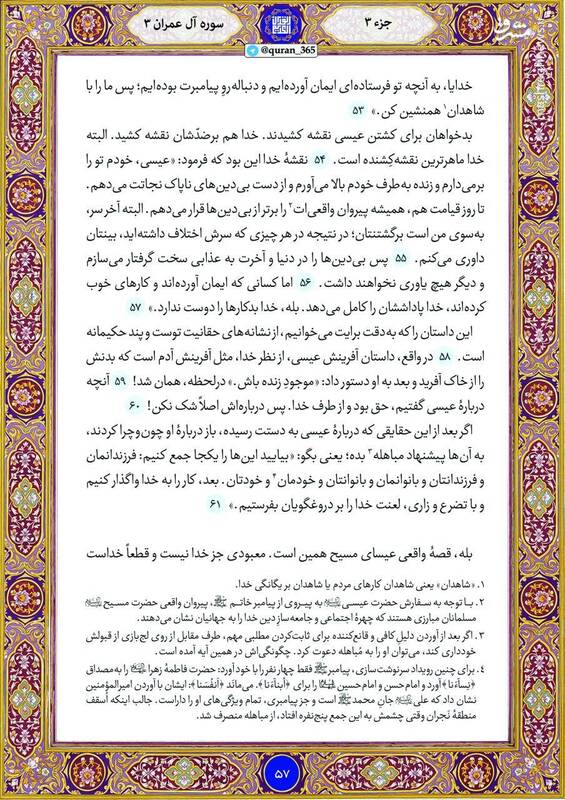 جزء ۳
سوره آل عمران ۳
@quran_365
خدایا، به آنچه تو فرستاده‌ای ایمان آورده‌ایم و دنباله‌روِ پیامبرت بوده‌ایم؛ پس ما را با
شاهدان۱ همنشین کن.» ۵۳
بدخواهان برای کشتن عیسی نقشه کشیدند. خدا هم برضدّشان نقشه کشید. البته
خدا ماهرترین نقشه‌کِشنده است. ۵۴ نقشهٔ خدا این بود که فرمود: «عیسی، خودم تو را
برمی‌دارم و زنده به‌طرف خودم بالا می‌آورم و از دست بی‌دین‌های ناپاک نجاتت می‌دهم.
تا روز قیامت هم، همیشه پیروان واقعی‌ات۲ را برتر از بی‌دین‌ها قرار می‌دهم. البته آخر سر،
به‌سوی من است برگشتنتان؛ در نتیجه در هر چیزی که سرش اختلاف داشته‌اید، بینتان
داوری می‌کنم. ۵۵ پس بی‌دین‌ها را در دنیا و آخرت به عذابی سخت گرفتار می‌سازم
و دیگر هیچ یاوری نخواهند داشت. ۵۶ اما کسانی که ایمان آورده‌اند و کارهای خوب
کرده‌اند، خدا پاداششان را کامل می‌دهد. بله، خدا بدکارها را دوست ندارد.» ۵۷
این داستان را که به‌دقت برایت می‌خوانیم، از نشانه‌های حقانیت توست و پند حکیمانه
است. ۵۸ در واقع، داستان آفرینش عیسی، از نظر خدا، مثل آفرینش آدم است که بدنش
را از خاک آفرید و بعد به او دستور داد: «موجودِ زنده باش.» درلحظه، همان شد! ۵۹ آنچه
دربارهٔ عیسی گفتیم، حق بود و از طرف خدا. پس درباره‌اش اصلاً شک نکن! ۶۰
اگر بعد از این حقایقی که دربارهٔ عیسی به دستت رسیده، باز دربارهٔ او چون‌وچرا کردند،
به آن‌ها پیشنهاد مباهله۳ بده؛ یعنی بگو: «بیایید این‌ها را یکجا جمع کنیم: فرزندانمان
و فرزندانتان و بانوانمان و بانوانتان و خودمان۴ و خودتان. بعد، کار را به خدا واگذار کنیم
و با تضرع و زاری، لعنت خدا را بر دروغگویان بفرستیم.» ۶۱
بله، قصهٔ واقعی عیسای مسیح همین است. معبودی جز خدا نیست و قطعاً خداست
۱. «شاهدان» یعنی شاهدان کارهای مردم یا شاهدان بر یگانگی خدا.
۲. با توجه به سفارش حضرت عیسی علیه‌السلام به پیروی از پیامبر خاتم ﷺ، پیروان واقعی حضرت مسیح علیه‌السلام
مسلمانان مبارزی هستند که چهرهٔ اجتماعی و جامعه‌سازِ دین خدا را به جهانیان نشان می‌دهند.
۳. اگر بعد از آوردن دلیل کافی و قانع‌کننده برای ثابت‌کردن مطلبی مهم، طرف مقابل از روی لج‌بازی از قبولش
خودداری کند، می‌توان او را به مُباهله دعوت کرد. چگونگی‌اش در همین آیه آمده است.
۴. برای چنین رویداد سرنوشت‌سازی، پیامبر ﷺ فقط چهار نفر را با خود آورد: حضرت فاطمهٔ زهرا علیهاالسلام را به‌مصداق
﴿نِساءَنا﴾ آورد و امام حسن و امام حسین علیهماالسلام را برای ﴿اَبناءَنا﴾. می‌ماند ﴿اَنفُسَنا﴾: ایشان با آوردن امیرالمؤمنین
نشان داد که علی علیه‌السلام جانِ محمد ﷺ است و جز پیامبری، تمام ویژگی‌های او را داراست. جالب اینکه اُسقف
منطقهٔ نَجران وقتی چشمش به این جمع پنج‌نفره افتاد، از مباهله منصرف شد.
۵۷